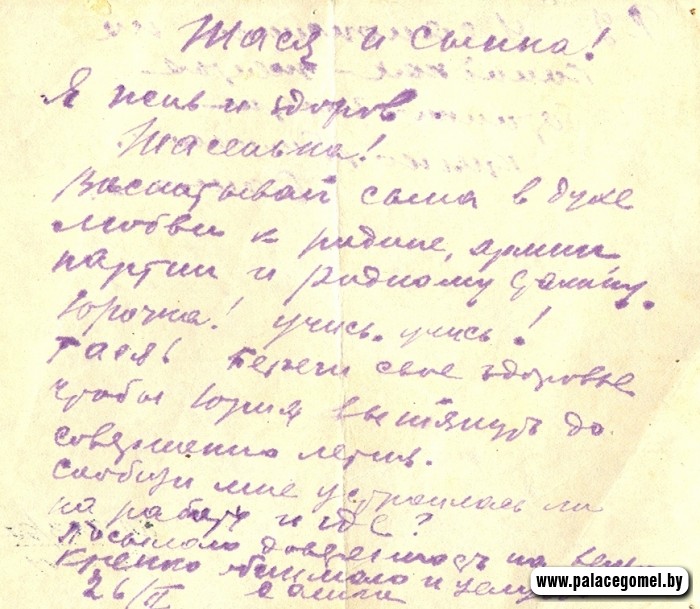 Тася и сынка!
Я жив и здоров
Тасенька!
Васпитывай сына в духе
любви к родине, армии
партии и родному Сталину.
Юрочка! учись. учись!
Тася береги свое здоровье
чтобы Юрия вытянуть до
совершенно летия.
сообщи мне устроилась ли
на работу и где?
Посылаю доверенность на
Крепко обнимаю и целую
26/II
www.palacegomel.by